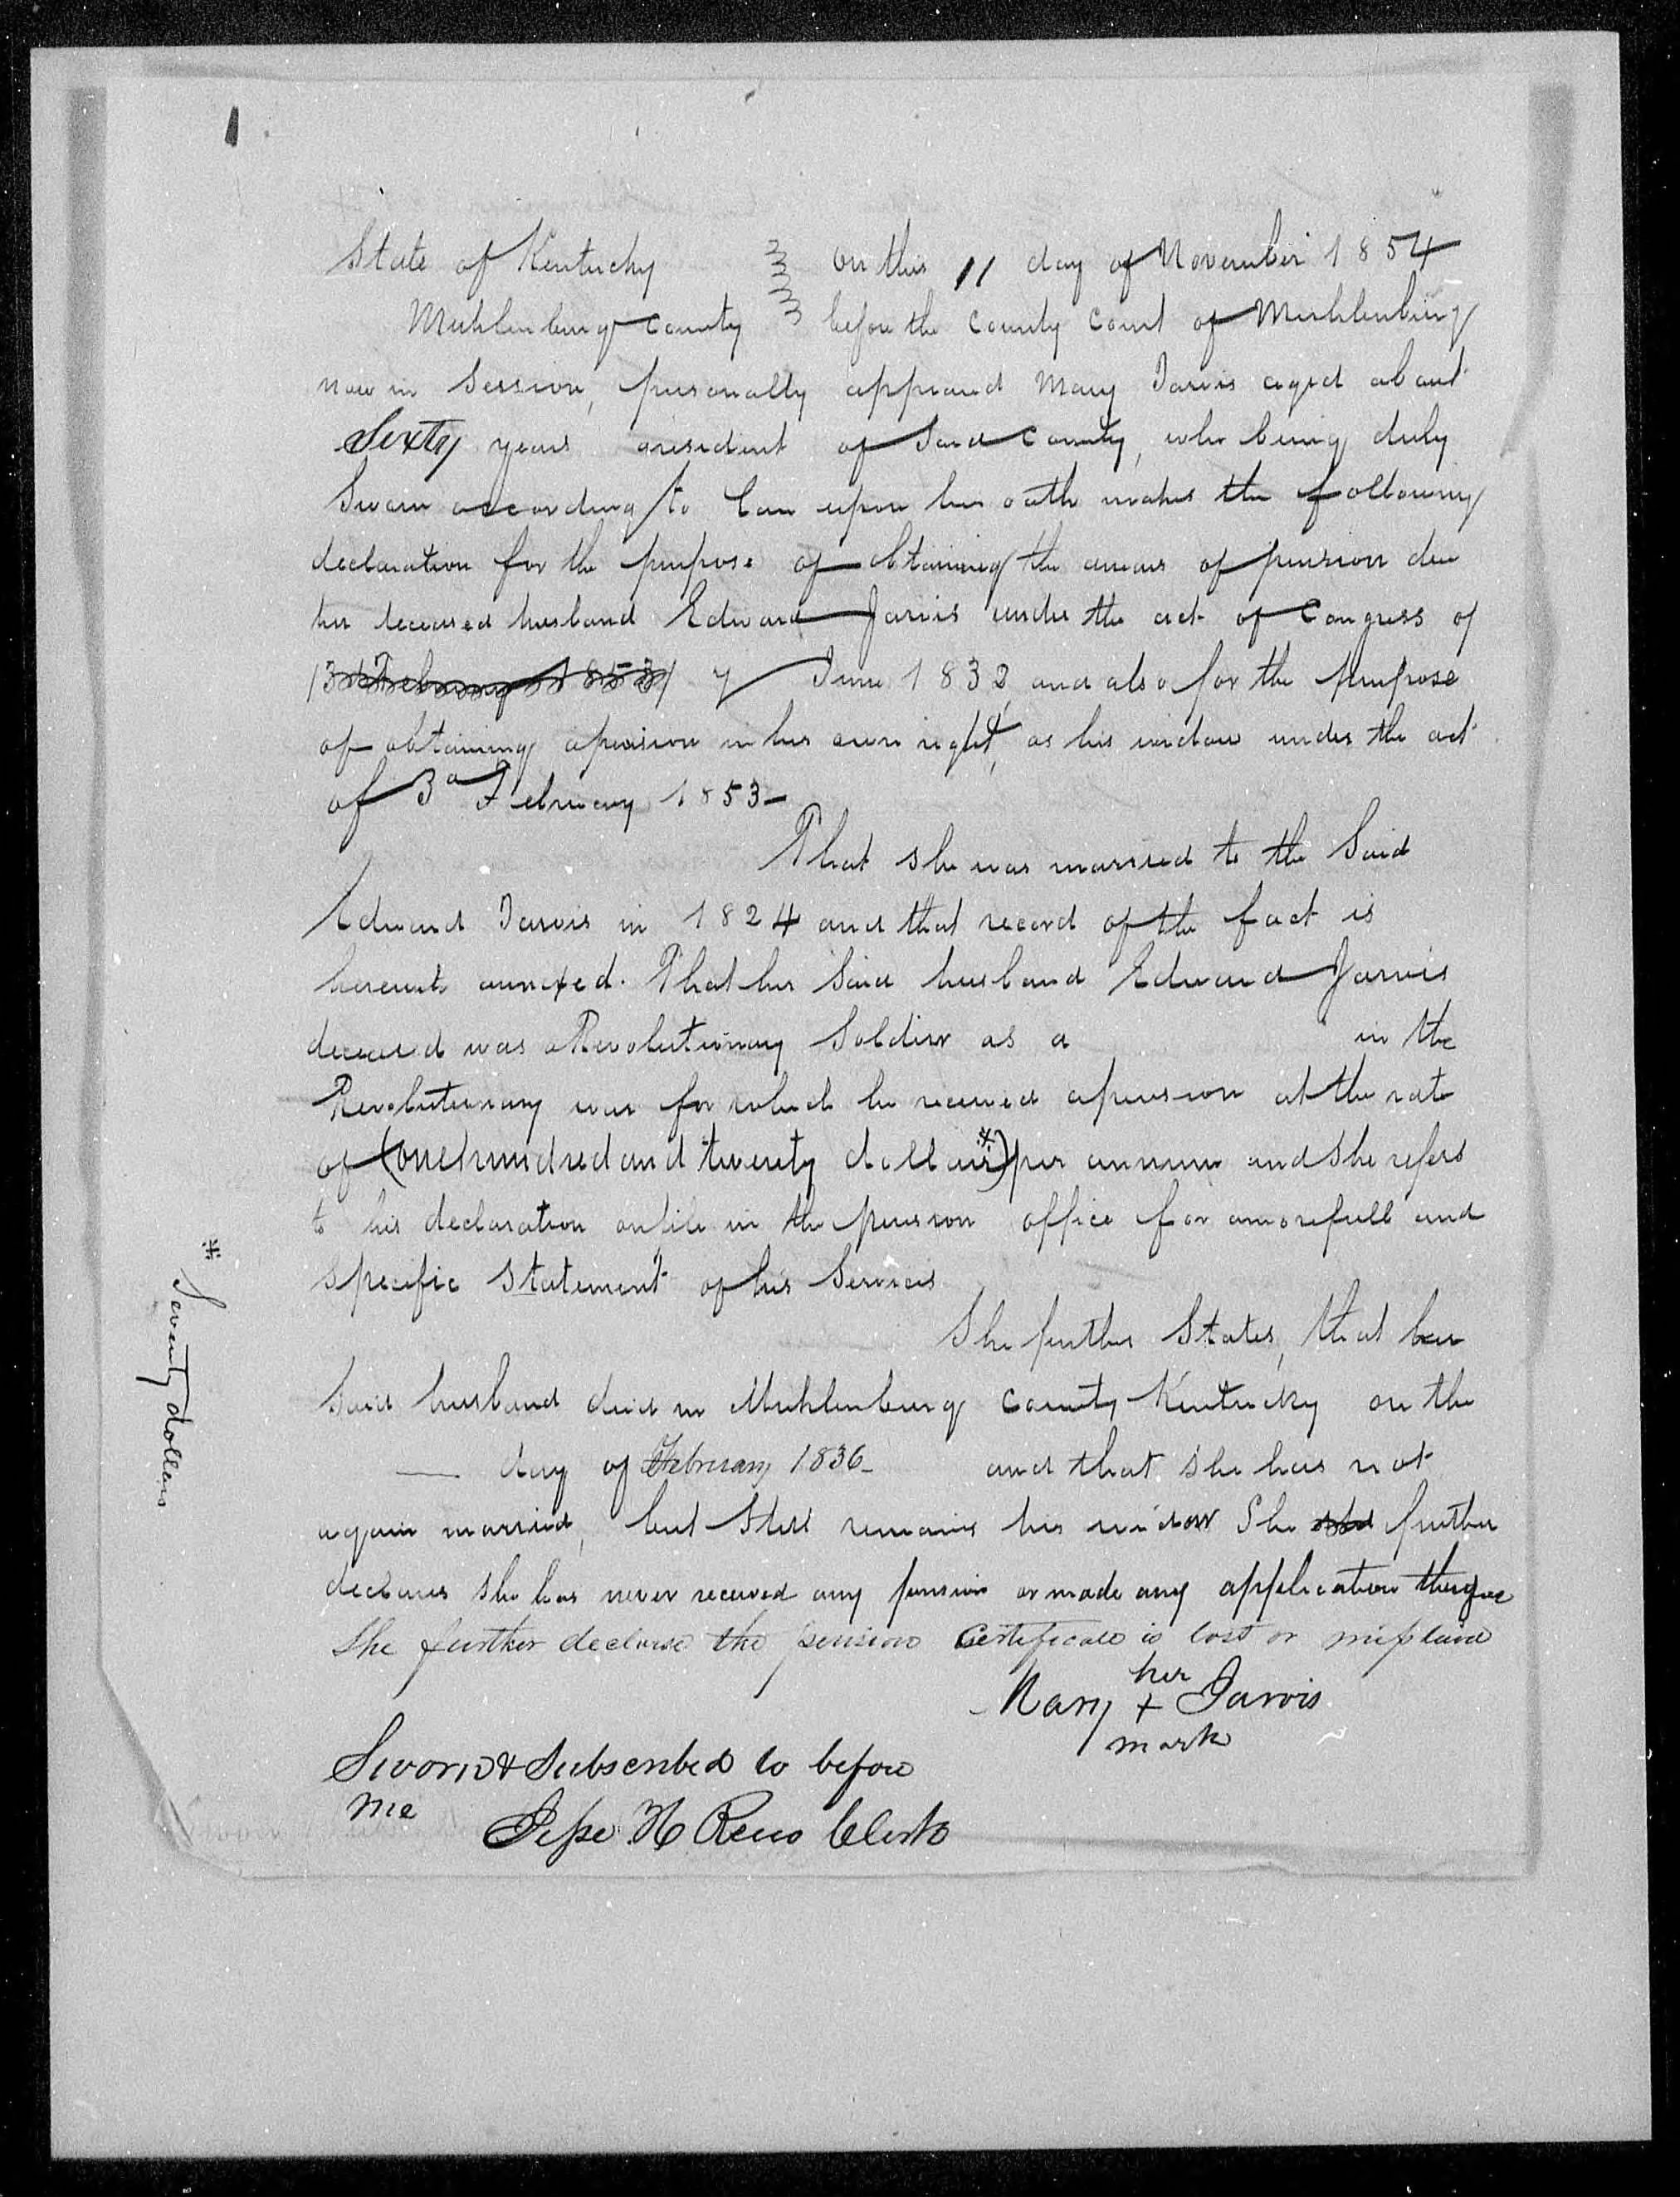 State of Kentucky } on this 11 day of November 1854
Muhlenburg county } before the County Court of Muhlenburg
now in Session, personally appeared Mary Jarvis aged about
Sixty years a resident of Said County, who being duly
Sworn according to Law upon her oath makes the following
declaration for the purpose of obtaining the arrears of pension due
her deceased husband Edward Jarvis under the act of Congress of
3d February 1853 7 June 1832, and also for the purpose
of obtaining a pension in her own right, as his widow under the act
of 3d February 1853—
That she was married to the Said
Edward Jarvis in 1824 and that record of the fact is
hereunto annexed. That her Said husband Edward Jarvis
deceased was a Revolutionary Soldier as a in the
Revolutionary war for which he received a pension at the rate
of (one hundred and twenty dollars*) per annum and She refers
to his declaration on file in the pension office for a more full and
Specific Statement of his Services
She further States, that her
Said husband died in Muhlenburg County Kentucky on the
— day of February 1836— and that she has not
again married, but Still remains his widow She further
declares she has never received any pension or made any application therefor
She further declares the pension Certificate is lost or misplaced
her
Mary + Jarvis
mark
Sworn & Subscribed to before
me
Jesse H Reno Clerk
* Seventy dollars